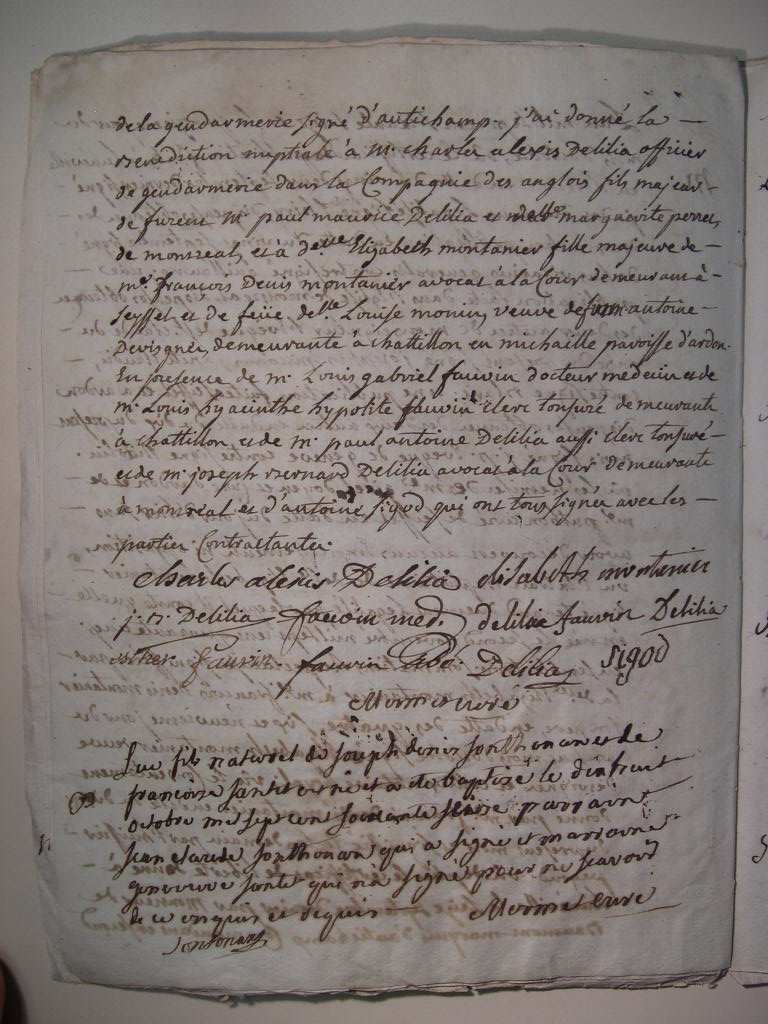 de la gendarmerie signé d'autichamp. j'ai donné la —
Benediction nuptiale à mr. charles alexis Delilia officier
de gendarmerie dans la Compagnie des anglois fils majeur —
de furent Mr. paul maurice Delilia et de marguerite perret
de montreal, et à delle Elizabeth montanier fille majeure de —
me. françois Denis montanier avocat à la Cour demeurant à —
Seyssel et de feüe delle. Louise monin, veuve de antoine —
demeurante à chattillon en michaille paroisse d'ardon.
En presence de mr. Louis gabriel fauvin docteur medecin et de
mr. Louis hyacinthe hypolite fauvin clerc tonsuré demeurants
à chattillon et de mr. paul antoine Delilia aussi clerc tonsuré —
et de mr. joseph Bernard Delilia avocat à la Cour demeurants
à montreal et d'antoine sigod qui ont tous signés avec les —
parties Contractantes.
charles alexis Delilia elisabeth montanier
j. B. Delilia fauvin med. delilia fauvin Delilia
fauvin fauvin Delilia sigod
Mermet curé
Luc fils naturel de joseph denis jonthonan et de
francoise est né et a eté baptisé le dixhuit
octobre mil sept cent soixante seize parrain
jean claude jonthonan qui a signé et marraine
genevieve qui n'a signé pour ne scavoir
de ce enquis et requis Mermet curé